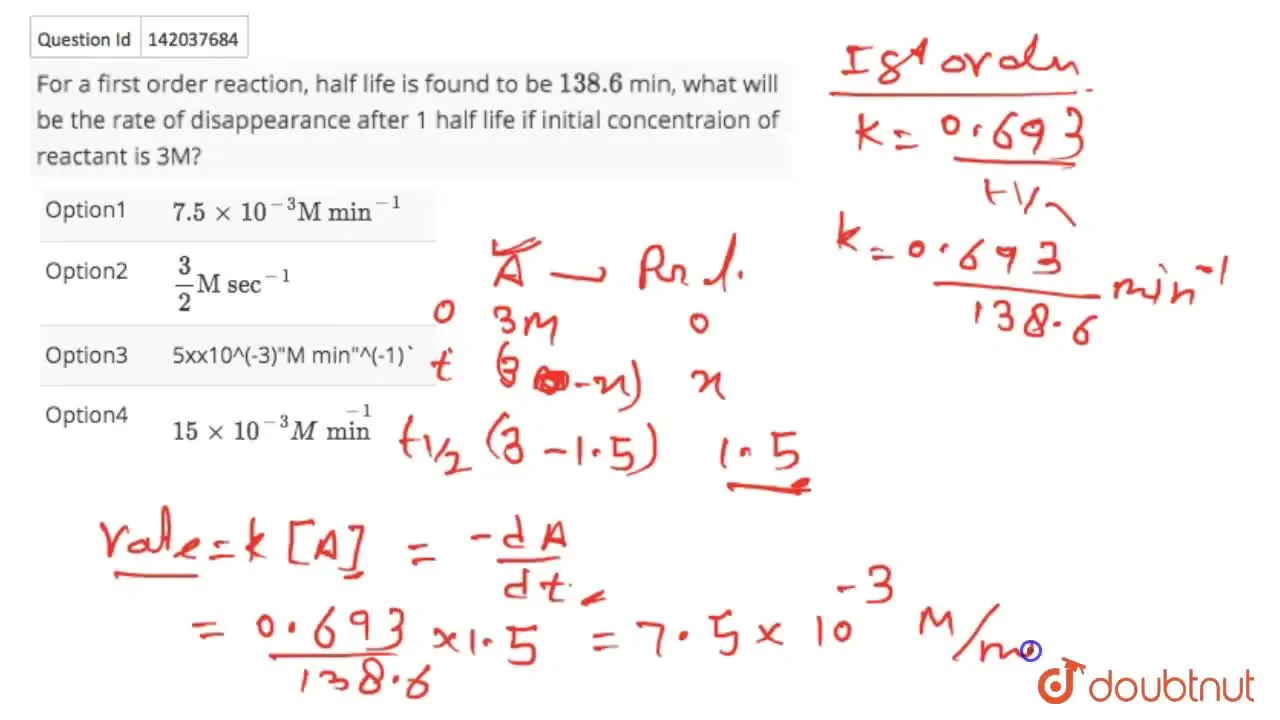 Question Id 142037684
For a first order reaction, half life is found to be 138.6 min, what will
be the rate of disappearance after 1 half life if initial concentraion of
reactant is 3M?
Option1 7.5 × 10⁻³M min⁻¹
Option2 3/2 M sec⁻¹
Option3 5xx10^(-3)"M min"^(-1)`
Option4 15 × 10⁻³M min⁻¹
Ist order
k = 0.693/t1/2
k = 0.693/138.6 min⁻¹
A → Prd.
0 3M 0
t (3 -x) x
t1/2 (3 -1.5) 1.5
rate = k [A] = -dA/dt
= 0.693/138.6 × 1.5 = 7.5 × 10⁻³ M/m
doubtnut